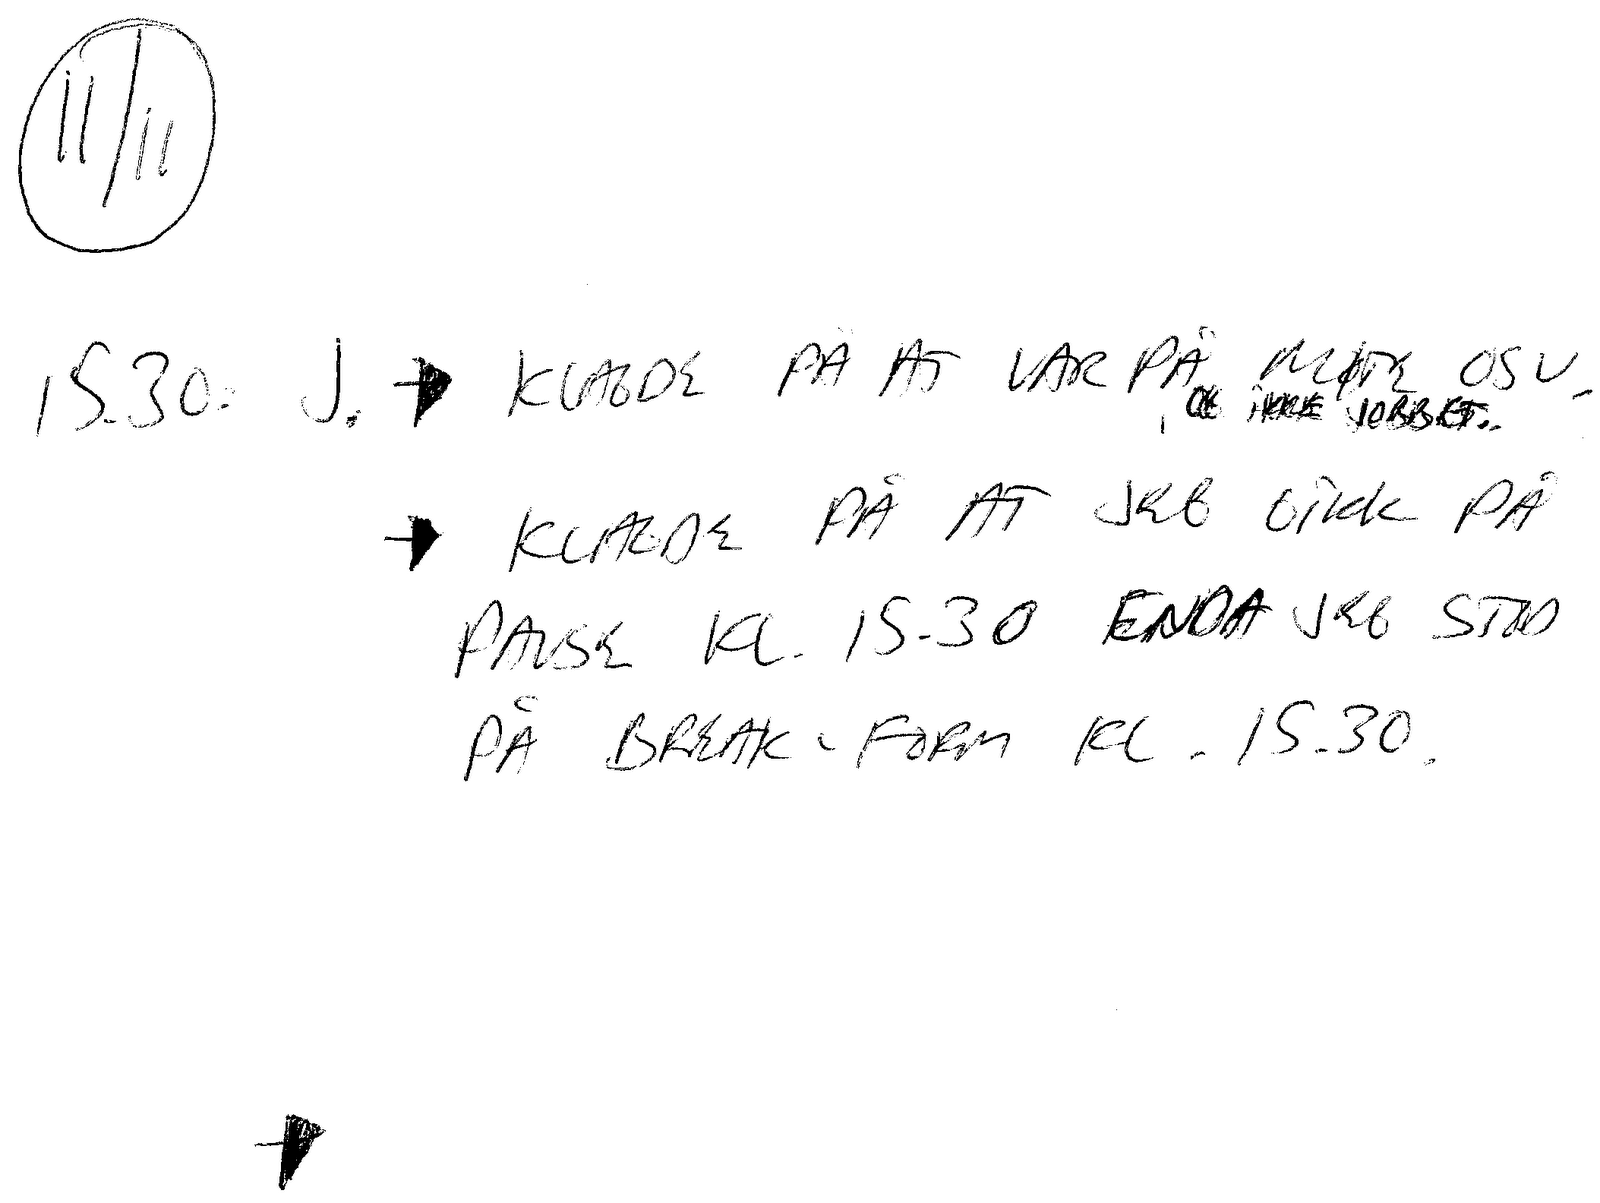 11/11
15.30: J. → KLAGDE PÅ AT VAR PÅ MØTE OSV.
, OG IKKE JOBBET..
→ KLAGDE PÅ AT JEG GIKK PÅ
PAUSE KL. 15.30 ENDA JEG STOD
PÅ BREAK-FORM KL. 15.30.
→